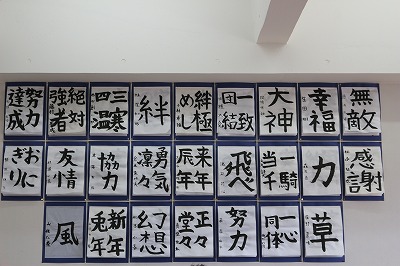 無敵
幸福
大神
一致
団結
絆極
めし
絆
三寒
四温
絶対
強者
努力
達成
感謝
力
一騎
当千
飛べ
来年
辰年
勇気
凛々
協力
友情
おに
ぎり
草
一心
同体
努力
正々
堂々
幻想
新年
兎年
風